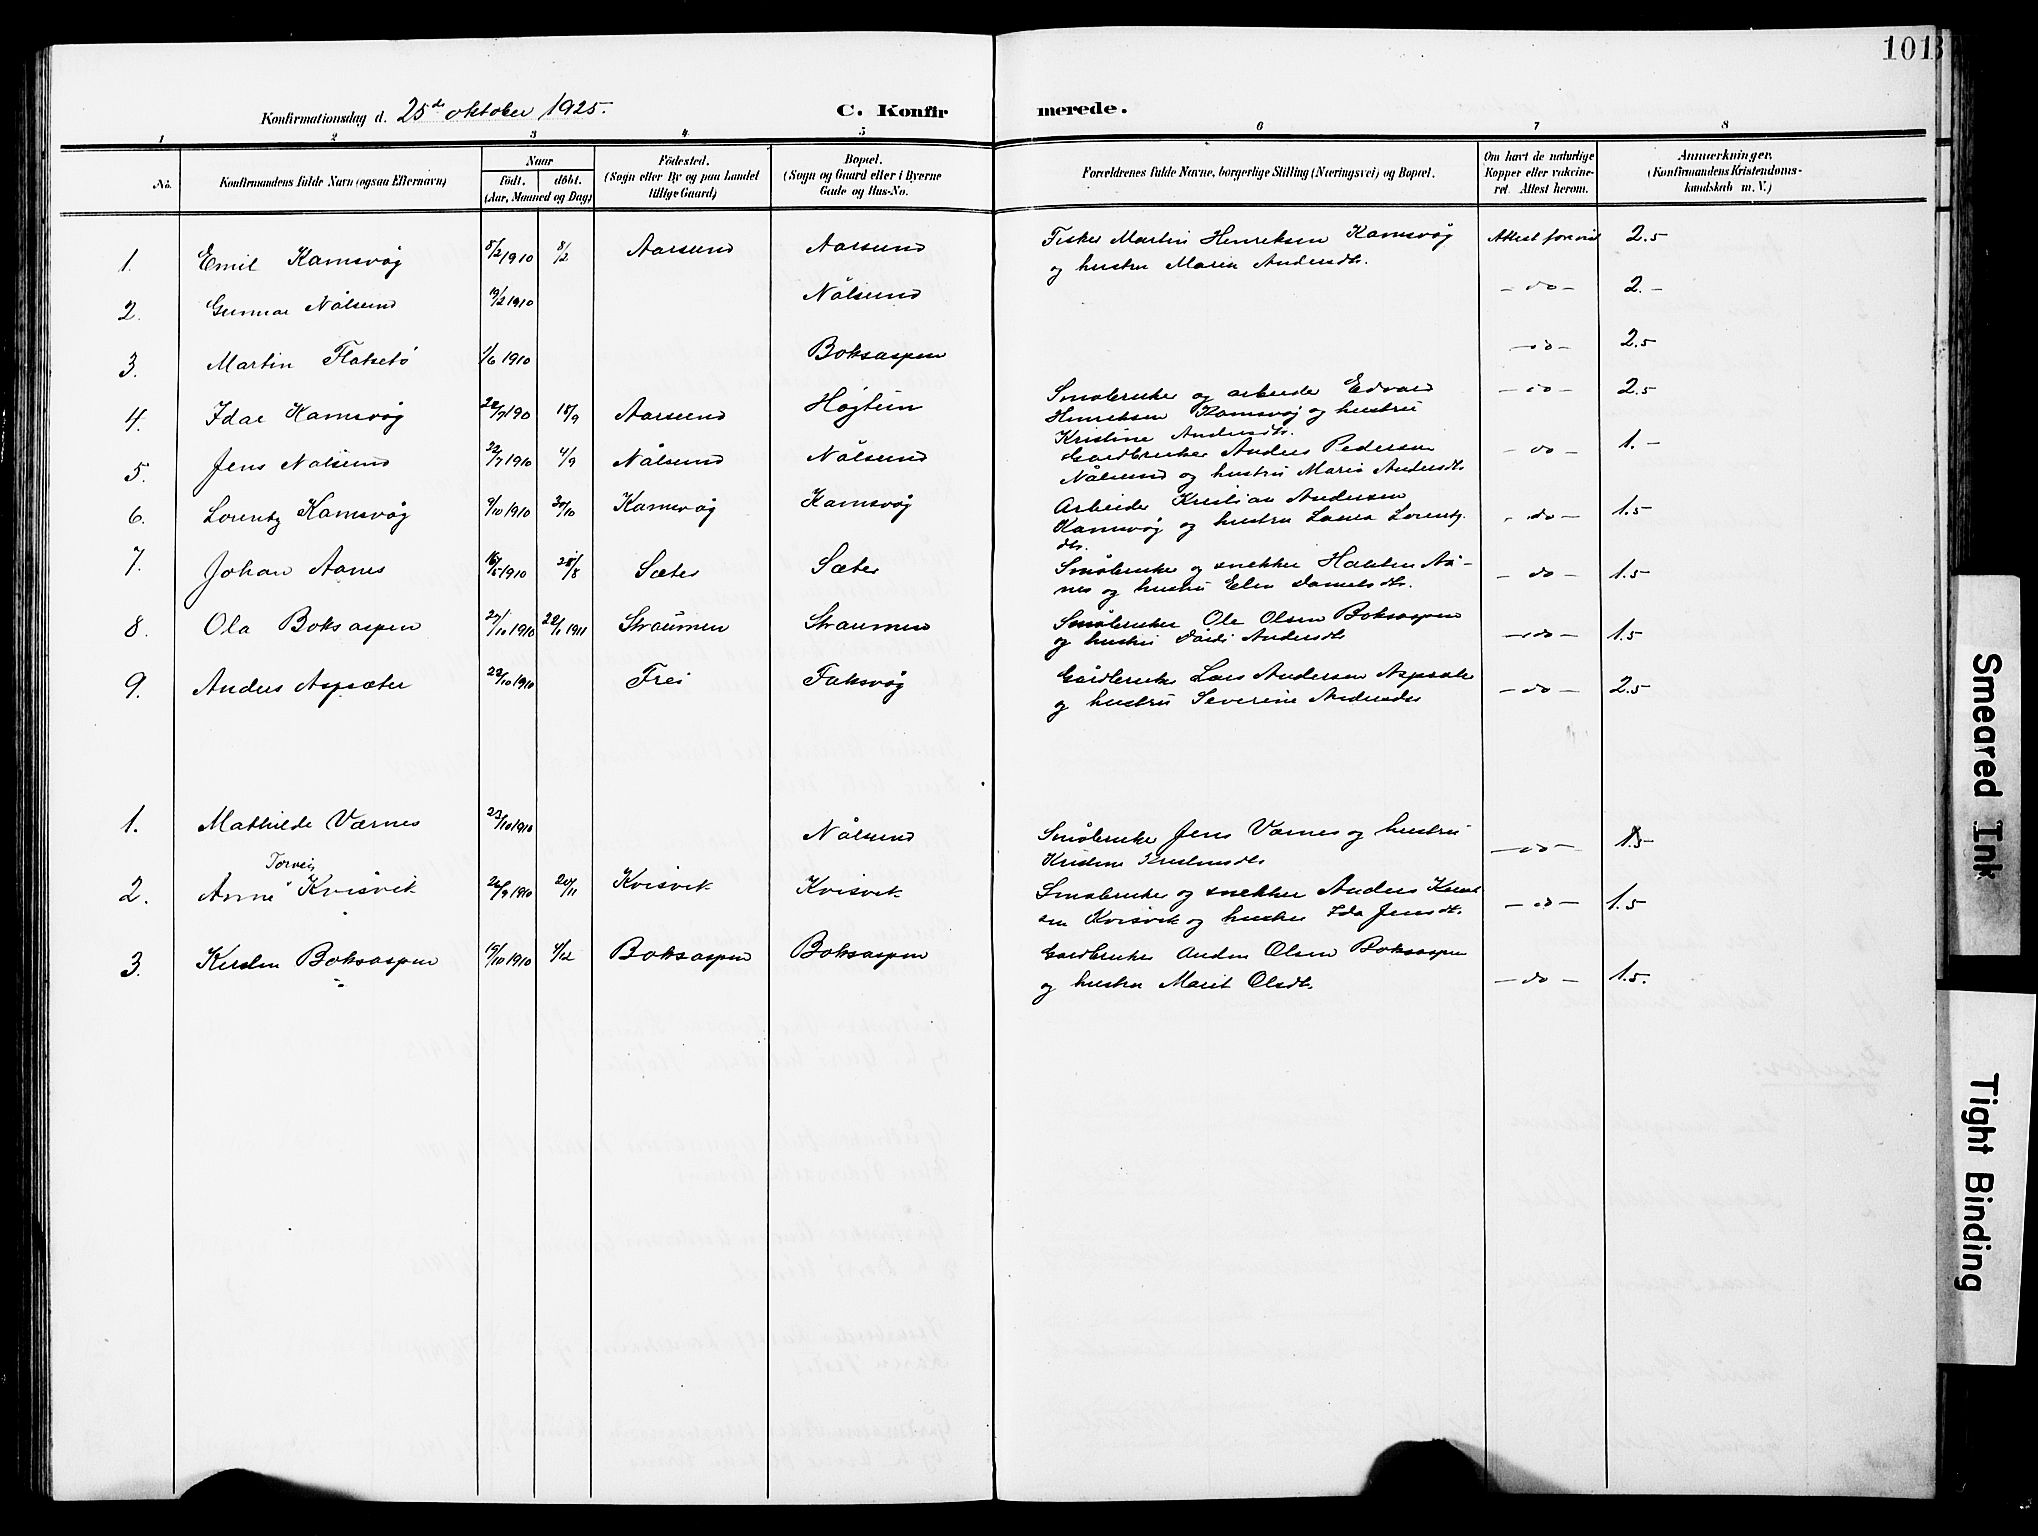 101
Konfirmationsdag d. 25de oktober 1925. C. Konfirmerede.
1 2 3 4 5 6 7 8
No. Konfirmandens fulde Navn (ogsaa Efternavn) Naar Født. døbt. (Aar, Maaned og Dag) Fødested. (Sogn eller By og paa Landet tillige Gaard) Bopæl. (Sogn og Gaard eller i Byerne Gade og Hus-No. Forældrenes fulde Navne, borgerlige Stilling (Næringsvei) og Bopæl. Om havt de naturlige Kopper eller vakcineret. Attest herom. Anmærkninger. (Konfirmandens Kristendomskundskab m. V.)
1. Emil Kamsvåg 8/2 1910 8/2 Aarsund Aarsund Fisker Martin Henriksen Kamsvåg Attest forevist 2.5
og hustru Maria Andersdt.
2. Gunnar Nålsund 19/2 1910 Nålsund — do — 2.—
3. Martin Flatsetø 1/6 1910 Boksaspen — do — 2.5
4. Idar Kamsvåg 22/7 190 18/9 Aarsund Høgtun Småbruker og arbeider Edvard — do — 2.5
Henriksen Kamsvåg og hustru
Kristine Andersdt.
5. Jens Nålsund 22/7 1910 4/9 Nålsund Nålsund Gardbruker Anders Pedersen — do — 1.—
Nålsund og hustru Marie Andersdt.
6. Lorentz Kamsvåg 9/10 1910 30/10 Kamsvåg Kamsvåg Arbeider Kristian Andersen — do — 1.5
Kamsvåg og hustru Laura Lorentz
dt.
7. Johan Aanes 16/5 1910 28/8 Sæter Sæter Småbruker og snekker Halsten Aa- — do — 1.5
nes og hustru Elen Danielsdt.
8. Ola Boksaspen 27/10 1910 22/1 1911 Straumen Straumen Småbruker Ole Olsen Boksaspen — do — 1.5
og hustru Dårdi Andersdt.
9. Anders Aspsæter 22/10 1910 Frei Fuksvåg Gårdbruker Lars Andersen Aspsæter — do — 2.5
og hustru Severine Andersdtr
1. Mathilde Værnes 23/10 1910 Nålsund Småbruker Jens Værnes og hustru — do — 1.5
Kristine Kristensdt.
Torvei,
2. Anne Kvisvik 26/9 1910 20/11 Kvisvik Kvisvik Småbruker og snekker Anders — do — 1.5
sen Kvisvik og hustru Ida Jensdt.
3. Kirsten Boksaspen 15/10 1910 4/12 Boksaspen Boksaspen Gardbruker Anders Olsen Boksaspen — do — 1.5.
og hustru Marit Olsdt.
Smeared Ink
Tight Binding